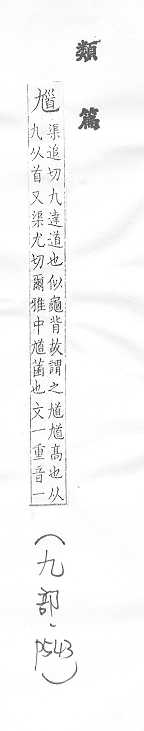 類篇
馗
渠追切九達道也似龜背故謂之馗馗高也从
九从首又渠尤切爾雅中馗菌也文一重音一
(九部．P543)